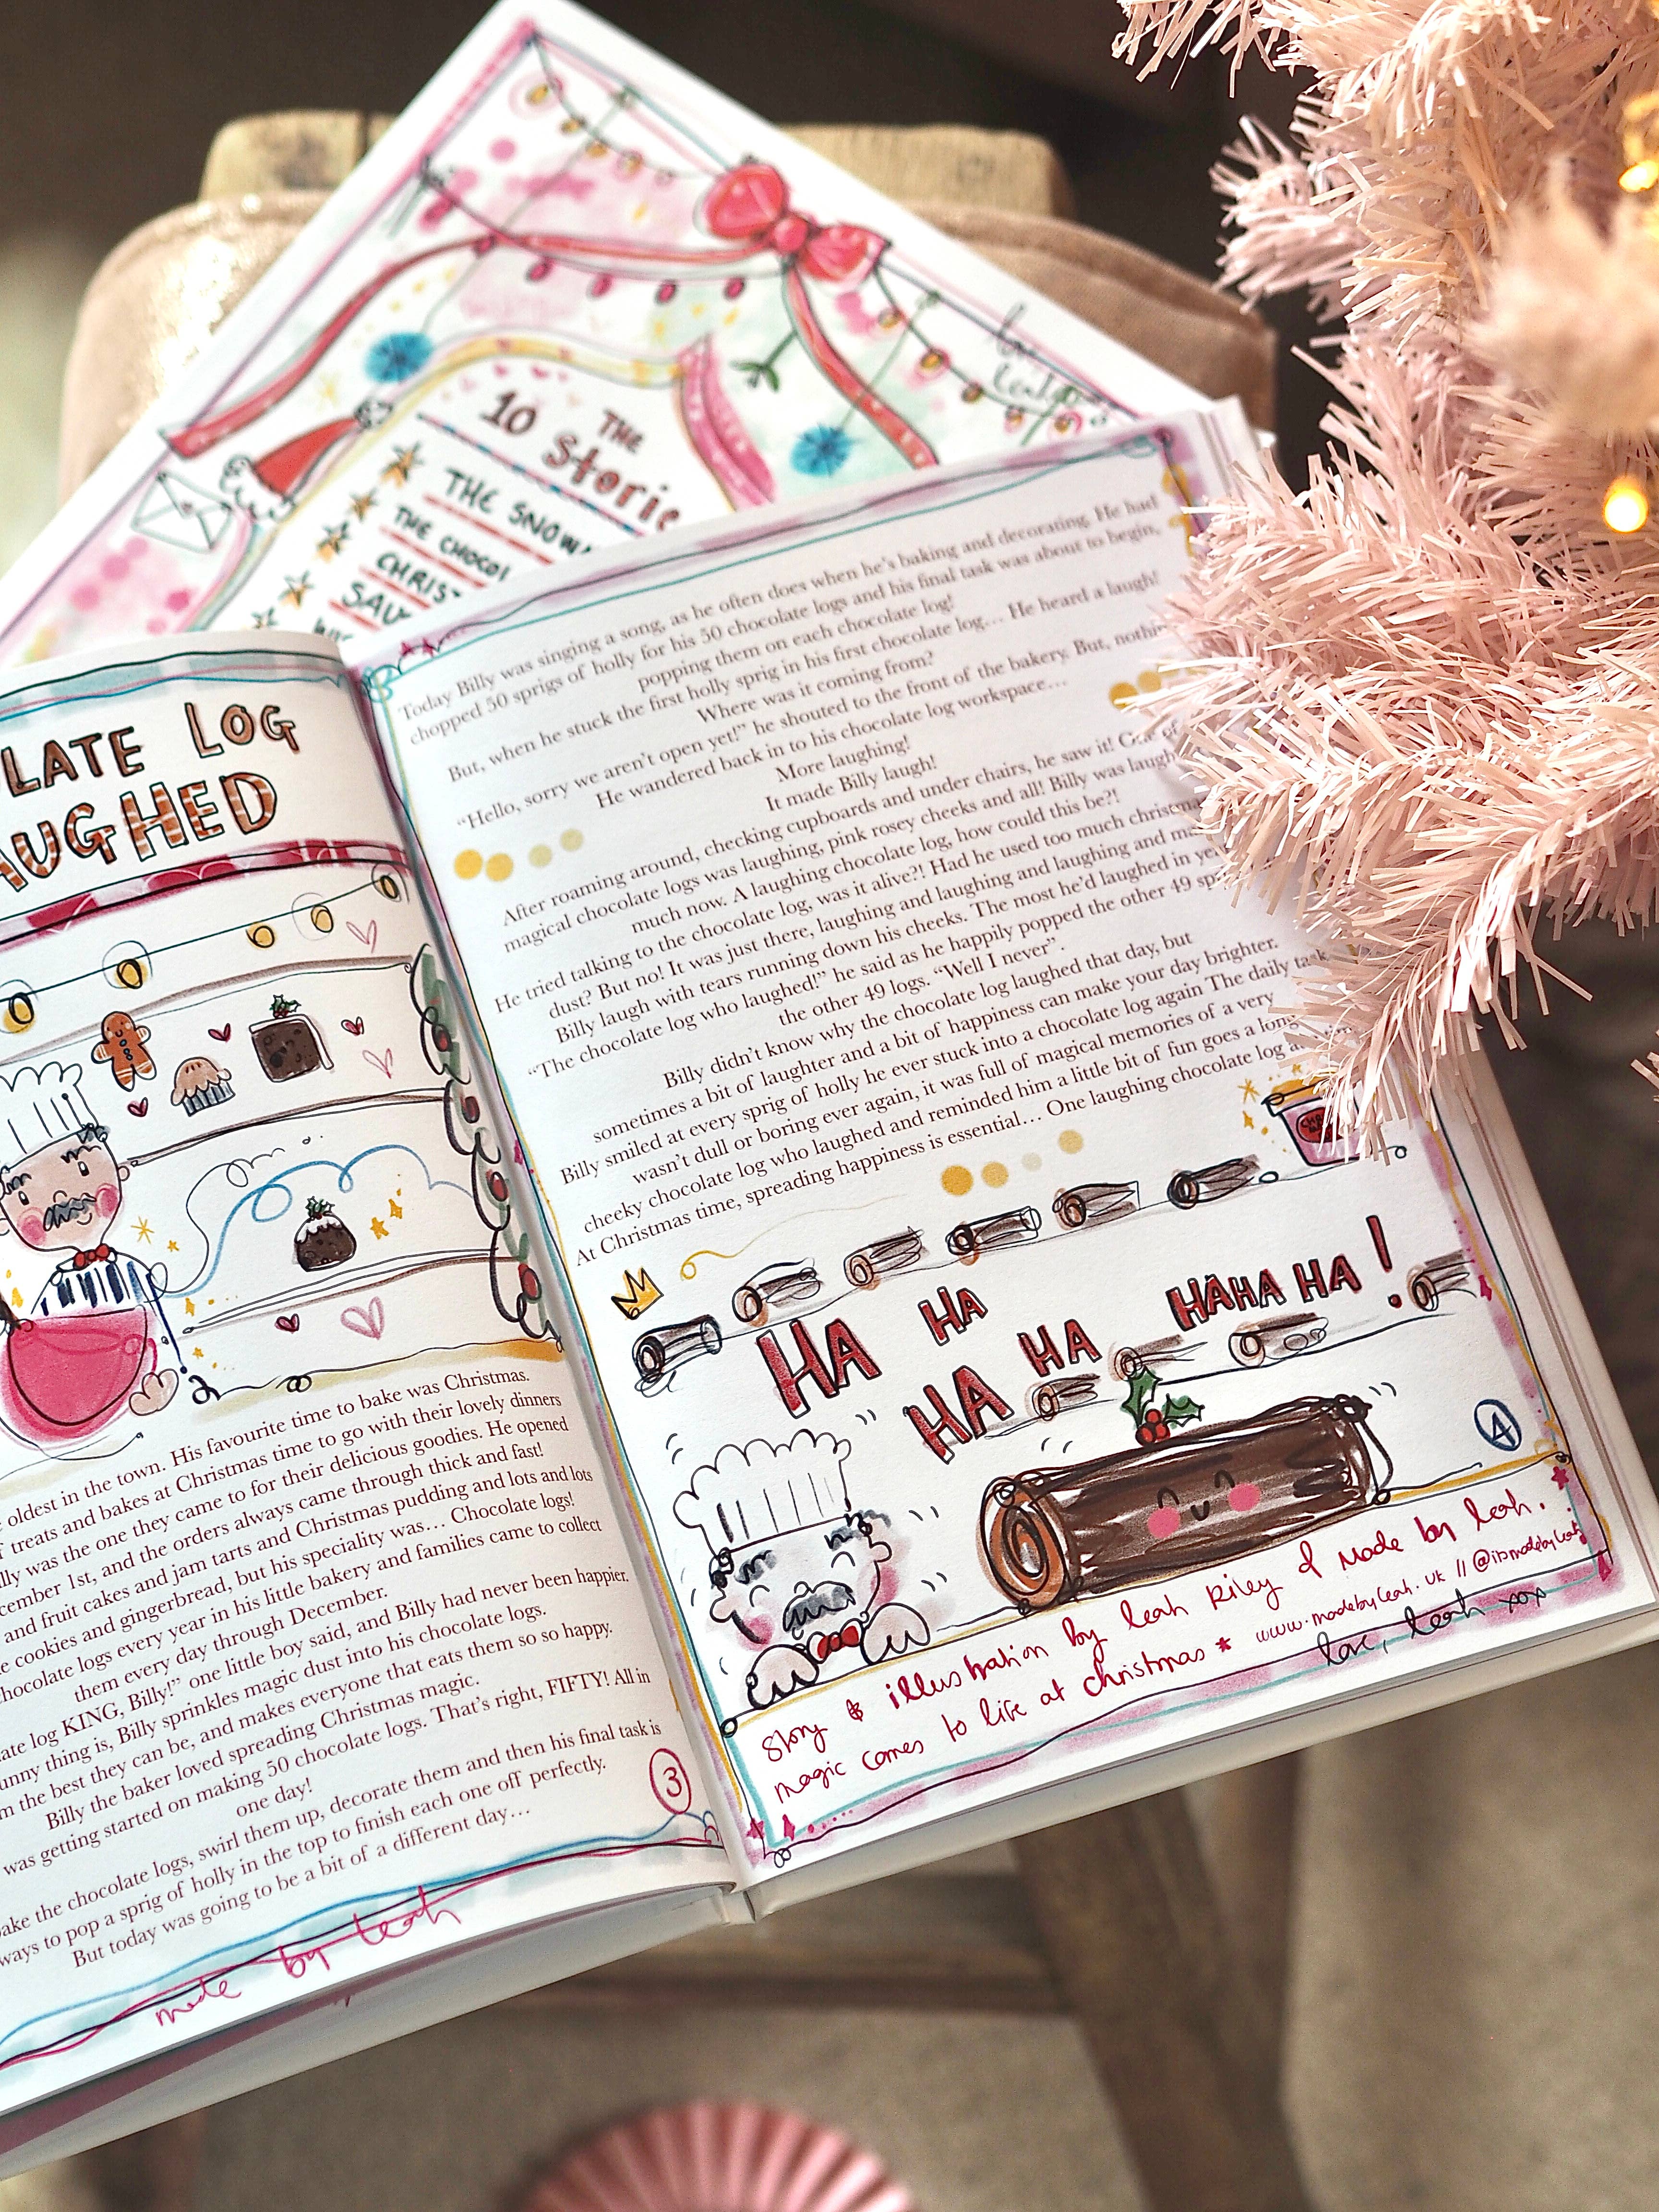 THE
10 Stories
THE SNOW
THE CHOCOL
CHRIS
LATE LOG
AUGHED
oldest in the town. His favourite time to bake was Christmas.
treats and bakes at Christmas time to go with their lovely dinners
was the one they came to for their delicious goodies. He opened
cember 1st, and the orders always came through thick and fast!
and fruit cakes and jam tarts and Christmas pudding and lots and lots
cookies and gingerbread, but his speciality was... Chocolate logs!
hocolate logs every year in his little bakery and families came to collect
them every day through December.
ate log KING, Billy!” one little boy said, and Billy had never been happier.
unny thing is, Billy sprinkles magic dust into his chocolate logs.
m the best they can be, and makes everyone that eats them so so happy.
Billy the baker loved spreading Christmas magic.
was getting started on making 50 chocolate logs. That’s right, FIFTY! All in
one day!
ake the chocolate logs, swirl them up, decorate them and then his final task is
ways to pop a sprig of holly in the top to finish each one off perfectly.
But today was going to be a bit of a different day...
3
made by leah
Today Billy was singing a song, as he often does when he’s baking and decorating. He had
chopped 50 sprigs of holly for his 50 chocolate logs and his final task was about to begin,
popping them on each chocolate log!
But, when he stuck the first holly sprig in his first chocolate log... He heard a laugh!
Where was it coming from?
“Hello, sorry we aren’t open yet!” he shouted to the front of the bakery. But, nothin
He wandered back in to his chocolate log workspace...
More laughing!
It made Billy laugh!
After roaming around, checking cupboards and under chairs, he saw it! One of
magical chocolate logs was laughing, pink rosey cheeks and all! Billy was laugh
much now. A laughing chocolate log, how could this be?!
He tried talking to the chocolate log, was it alive?! Had he used too much christma
dust? But no! It was just there, laughing and laughing and laughing and ma
Billy laugh with tears running down his cheeks. The most he’d laughed in ye
“The chocolate log who laughed!” he said as he happily popped the other 49 sp
the other 49 logs. “Well I never”.
Billy didn’t know why the chocolate log laughed that day, but
sometimes a bit of laughter and a bit of happiness can make your day brighter.
Billy smiled at every sprig of holly he ever stuck into a chocolate log again The daily task
wasn’t dull or boring ever again, it was full of magical memories of a very
cheeky chocolate log who laughed and reminded him a little bit of fun goes a long
At Christmas time, spreading happiness is essential... One laughing chocolate log a
HA HA HA HA HAHA HA!
4
Story & illustration by leah Riley of Made by leah.
magic comes to life at christmas * www.madebyleah.uk // @itsmadebyleah
love, leah xox